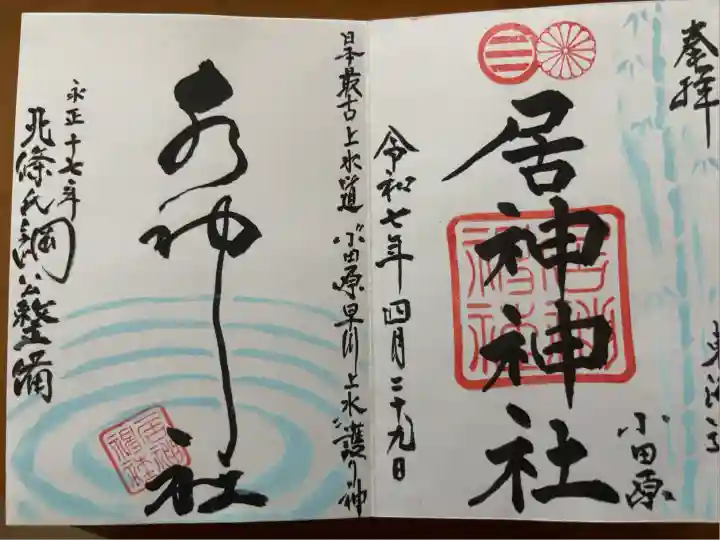 奉拝
小田原
居神神社
居神神社
令和七年四月二十九日
日本最古上水道 小田原早川上水護り神
水神社
居神神社
永正十七年
北條氏綱公整備